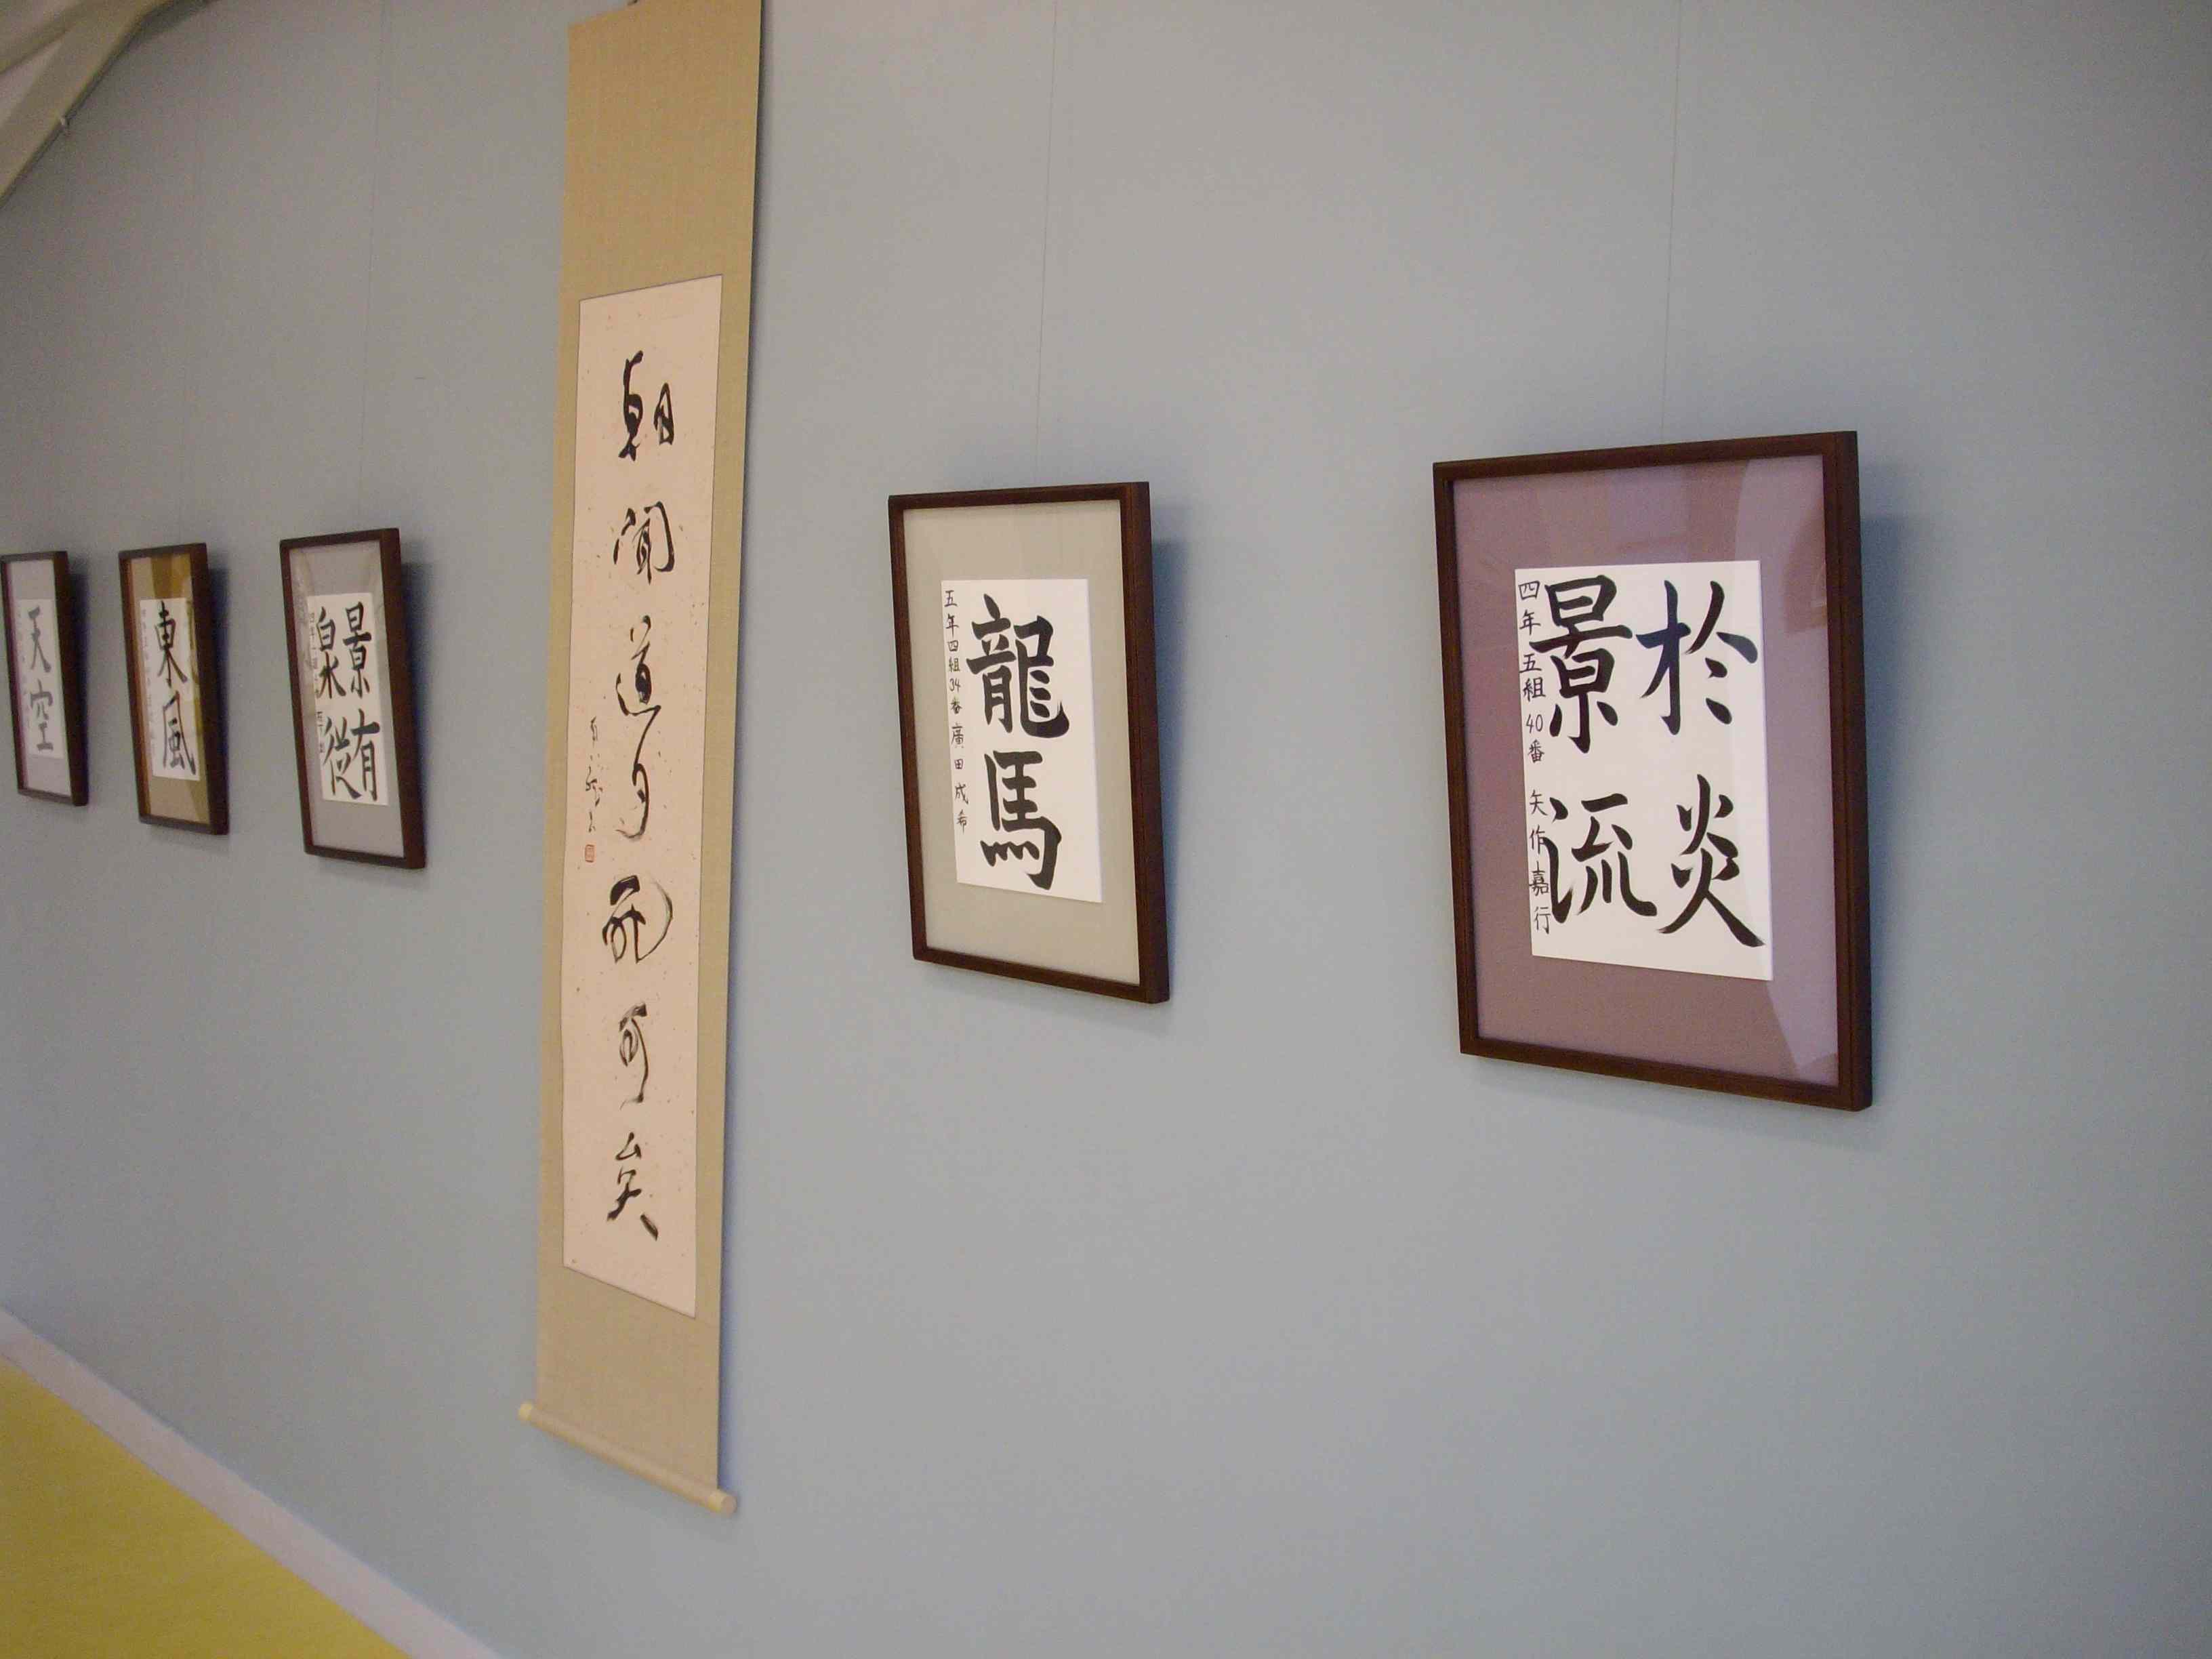 天空
東風
景有
泉從
朝聞道夕死可矣
龍馬
五年四組34番廣田成希
於炎
景流
四年五組40番 矢作嘉行